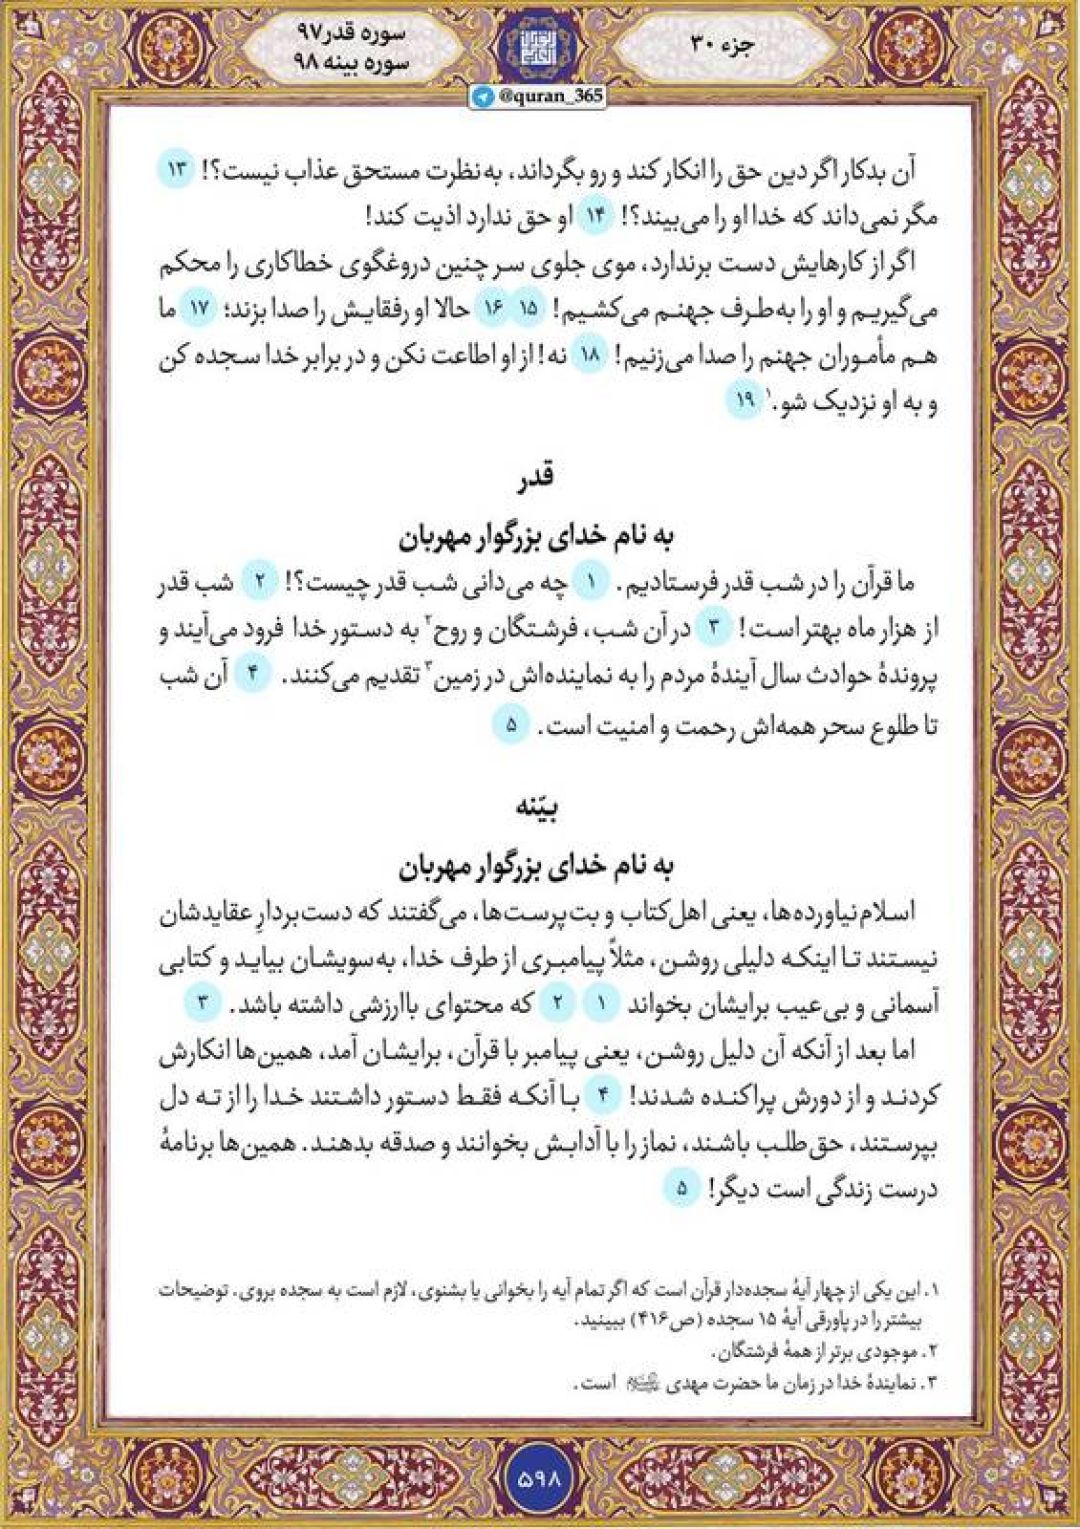 جزء ۳۰
سوره قدر۹۷
سوره بینه ۹۸
@quran_365
آن بدکار اگر دین حق را انکار کند و رو بگرداند، به‌نظرت مستحق عذاب نیست؟! ۱۳
مگر نمی‌داند که خدا او را می‌بیند؟! ۱۴ او حق ندارد اذیت کند!
اگر از کارهایش دست برندارد، موی جلوی سر چنین دروغگوی خطاکاری را محکم
می‌گیریم و او را به‌طرف جهنم می‌کشیم! ۱۵ ۱۶ حالا او رفقایش را صدا بزند؛ ۱۷ ما
هم مأموران جهنم را صدا می‌زنیم! ۱۸ نه! از او اطاعت نکن و در برابر خدا سجده کن
و به او نزدیک شو.۱ ۱۹
قدر
به نام خدای بزرگوار مهربان
ما قرآن را در شب قدر فرستادیم. ۱ چه می‌دانی شب قدر چیست؟! ۲ شب قدر
از هزار ماه بهتر است! ۳ در آن شب، فرشتگان و روح۲ به دستور خدا فرود می‌آیند و
پروندهٔ حوادث سال آیندهٔ مردم را به نماینده‌اش در زمین۳ تقدیم می‌کنند. ۴ آن شب
تا طلوع سحر همه‌اش رحمت و امنیت است. ۵
بیّنه
به نام خدای بزرگوار مهربان
اسلام‌نیاورده‌ها، یعنی اهل‌کتاب و بت‌پرست‌ها، می‌گفتند که دست‌بردارِ عقایدشان
نیستند تا اینکه دلیلی روشن، مثلاً پیامبری از طرف خدا، به‌سویشان بیاید و کتابی
آسمانی و بی‌عیب برایشان بخواند ۱ ۲ که محتوای باارزشی داشته باشد. ۳
اما بعد از آنکه آن دلیل روشن، یعنی پیامبر با قرآن، برایشان آمد، همین‌ها انکارش
کردند و از دورش پراکنده شدند! ۴ با آنکه فقط دستور داشتند خدا را از ته دل
بپرستند، حق‌طلب باشند، نماز را با آدابش بخوانند و صدقه بدهند. همین‌ها برنامهٔ
درست زندگی است دیگر! ۵
۱. این یکی از چهار آیهٔ سجده‌دار قرآن است که اگر تمام آیه را بخوانی یا بشنوی، لازم است به سجده بروی. توضیحات
بیشتر را در پاورقی آیهٔ ۱۵ سجده (ص۴۱۶) ببینید.
۲. موجودی برتر از همهٔ فرشتگان.
۳. نمایندهٔ خدا در زمان ما حضرت مهدی است.
۵۹۸